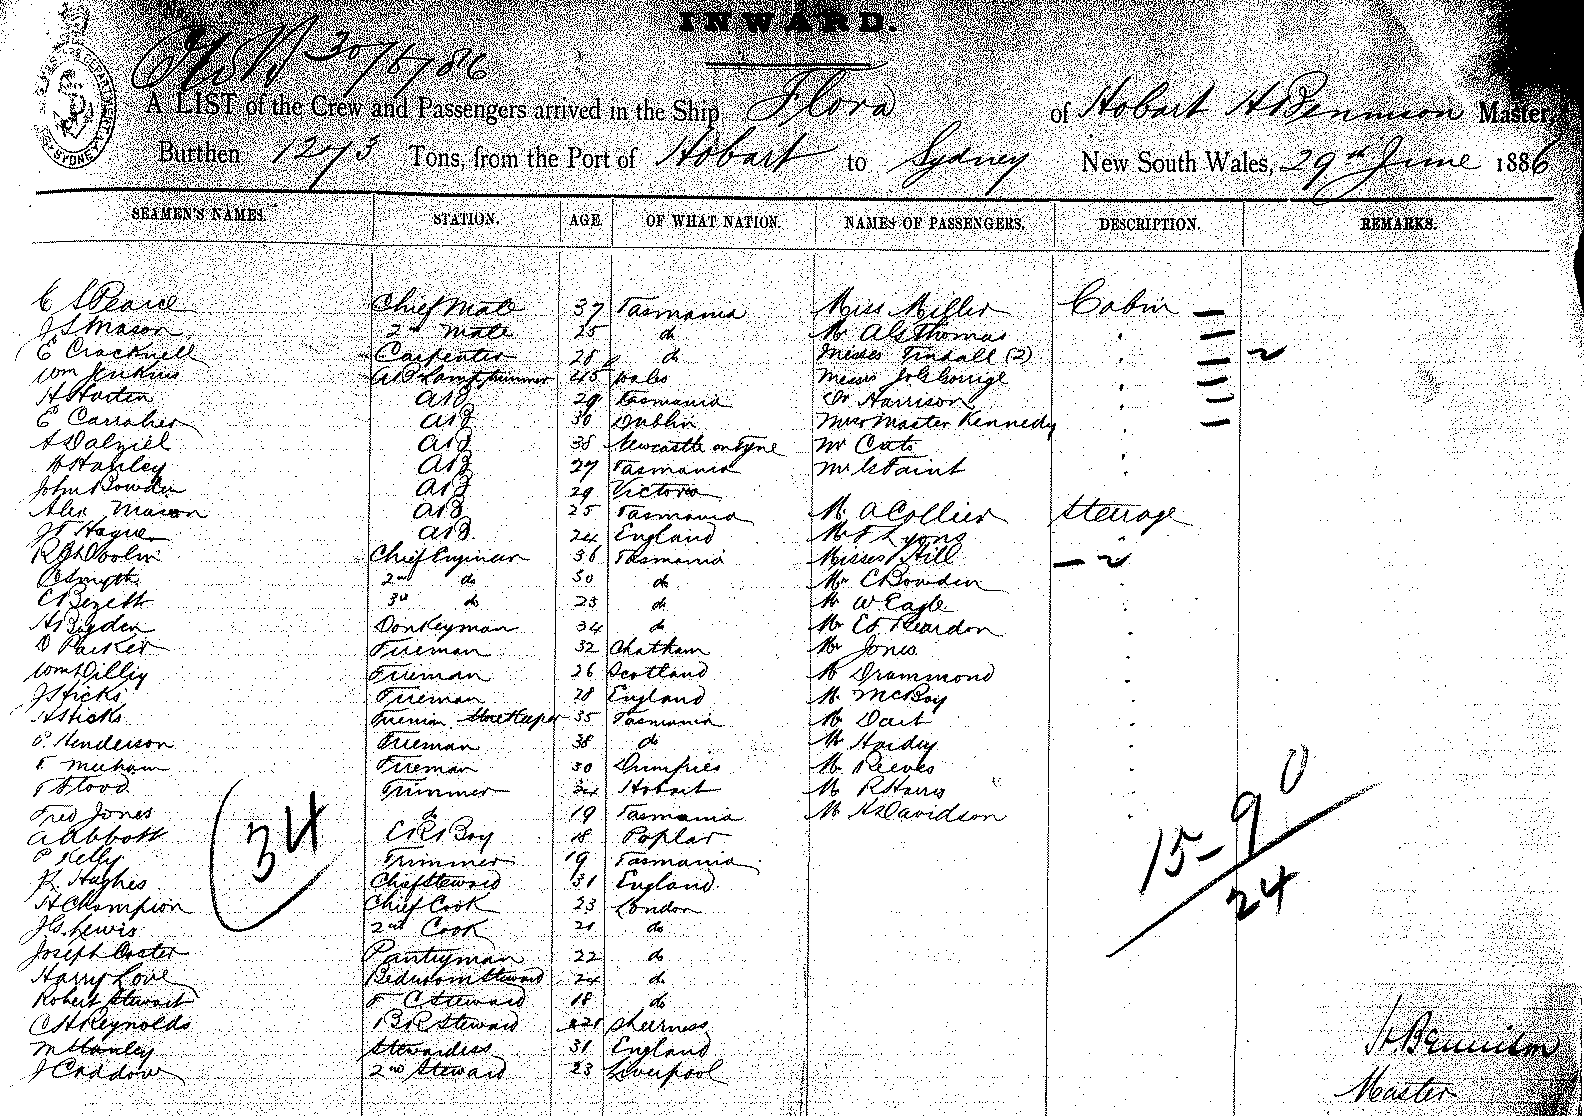 INWARD.
30/6/86
A LIST of the Crew and Passengers arrived in the Ship Flora of Hobart H Bennison Master,
Burthen 1273 Tons, from the Port of Hobart to Sydney New South Wales, 29th June 1886
SEAMEN'S NAMES. STATION. AGE OF WHAT NATION. NAMES OF PASSENGERS. DESCRIPTION. REMARKS.
C S Pearce Chief Mate 37 Tasmania Miss Miller Cabin
J S Mason 2nd mate 25 do Mr A G Thomas
E Cracknell Carpenter 28 do Misses Tindall (2)
Wm Jenkins AB Lamp trimmer 45 Wales Messrs
H Harten AB 29 Tasmania Dr Harrison
E Carraher AB 30 Dublin Mrs Master Kennedy
A Dalziel AB 38 Newcastle on Tyne Mr Cato
H Hanley AB 27 Tasmania Mr Le Faint
John Bowden AB 29 Victoria
Alex Mason AB 25 Tasmania Mr A Collier Steerage
J T Hague AB 24 England Mr F Lyons
Chief Engineer 36 Tasmania Misses Hill
P Smyth 2nd do 30 do Mr C Bowden
C Bezett 3rd do 23 do Mr W Eagle
H Bigden Donkeyman 34 do Mr Ed Reardon
D Parker Fireman 32 Chatham Mr Jones
Wm Dillig Fireman 26 Scotland Mr Drummond
J Hicks Fireman 28 England Mr McBoy
H Hicks Fireman Storekeeper 35 Tasmania Mr Dart
P. Henderson Fireman 38 do Mr Hardy
F Meeham Fireman 30 Dumfries Mr Reeves
T Flood Trimmer 24 Hobart Mr R Harris
Fred Jones do 19 Tasmania Mr H Davidson
A Abbott E R Boy 18 Poplar
P Kelly Trimmer 19 Tasmania
R Hughes Chief Steward 31 England
H Champion Chief Cook 23 London
J G Lewis 2nd Cook 21 do
Joseph Coster Pantryman 22 do
Harry Love Bedroom Steward 24 do
Robert Stewart F C Steward 18 do
C H Reynolds B R Steward 21 Sheerness
M Hanley Stewardess 31 England
J Caddow 2nd Steward 23 Liverpool
34
15-9 0
24
H Bennison
Master